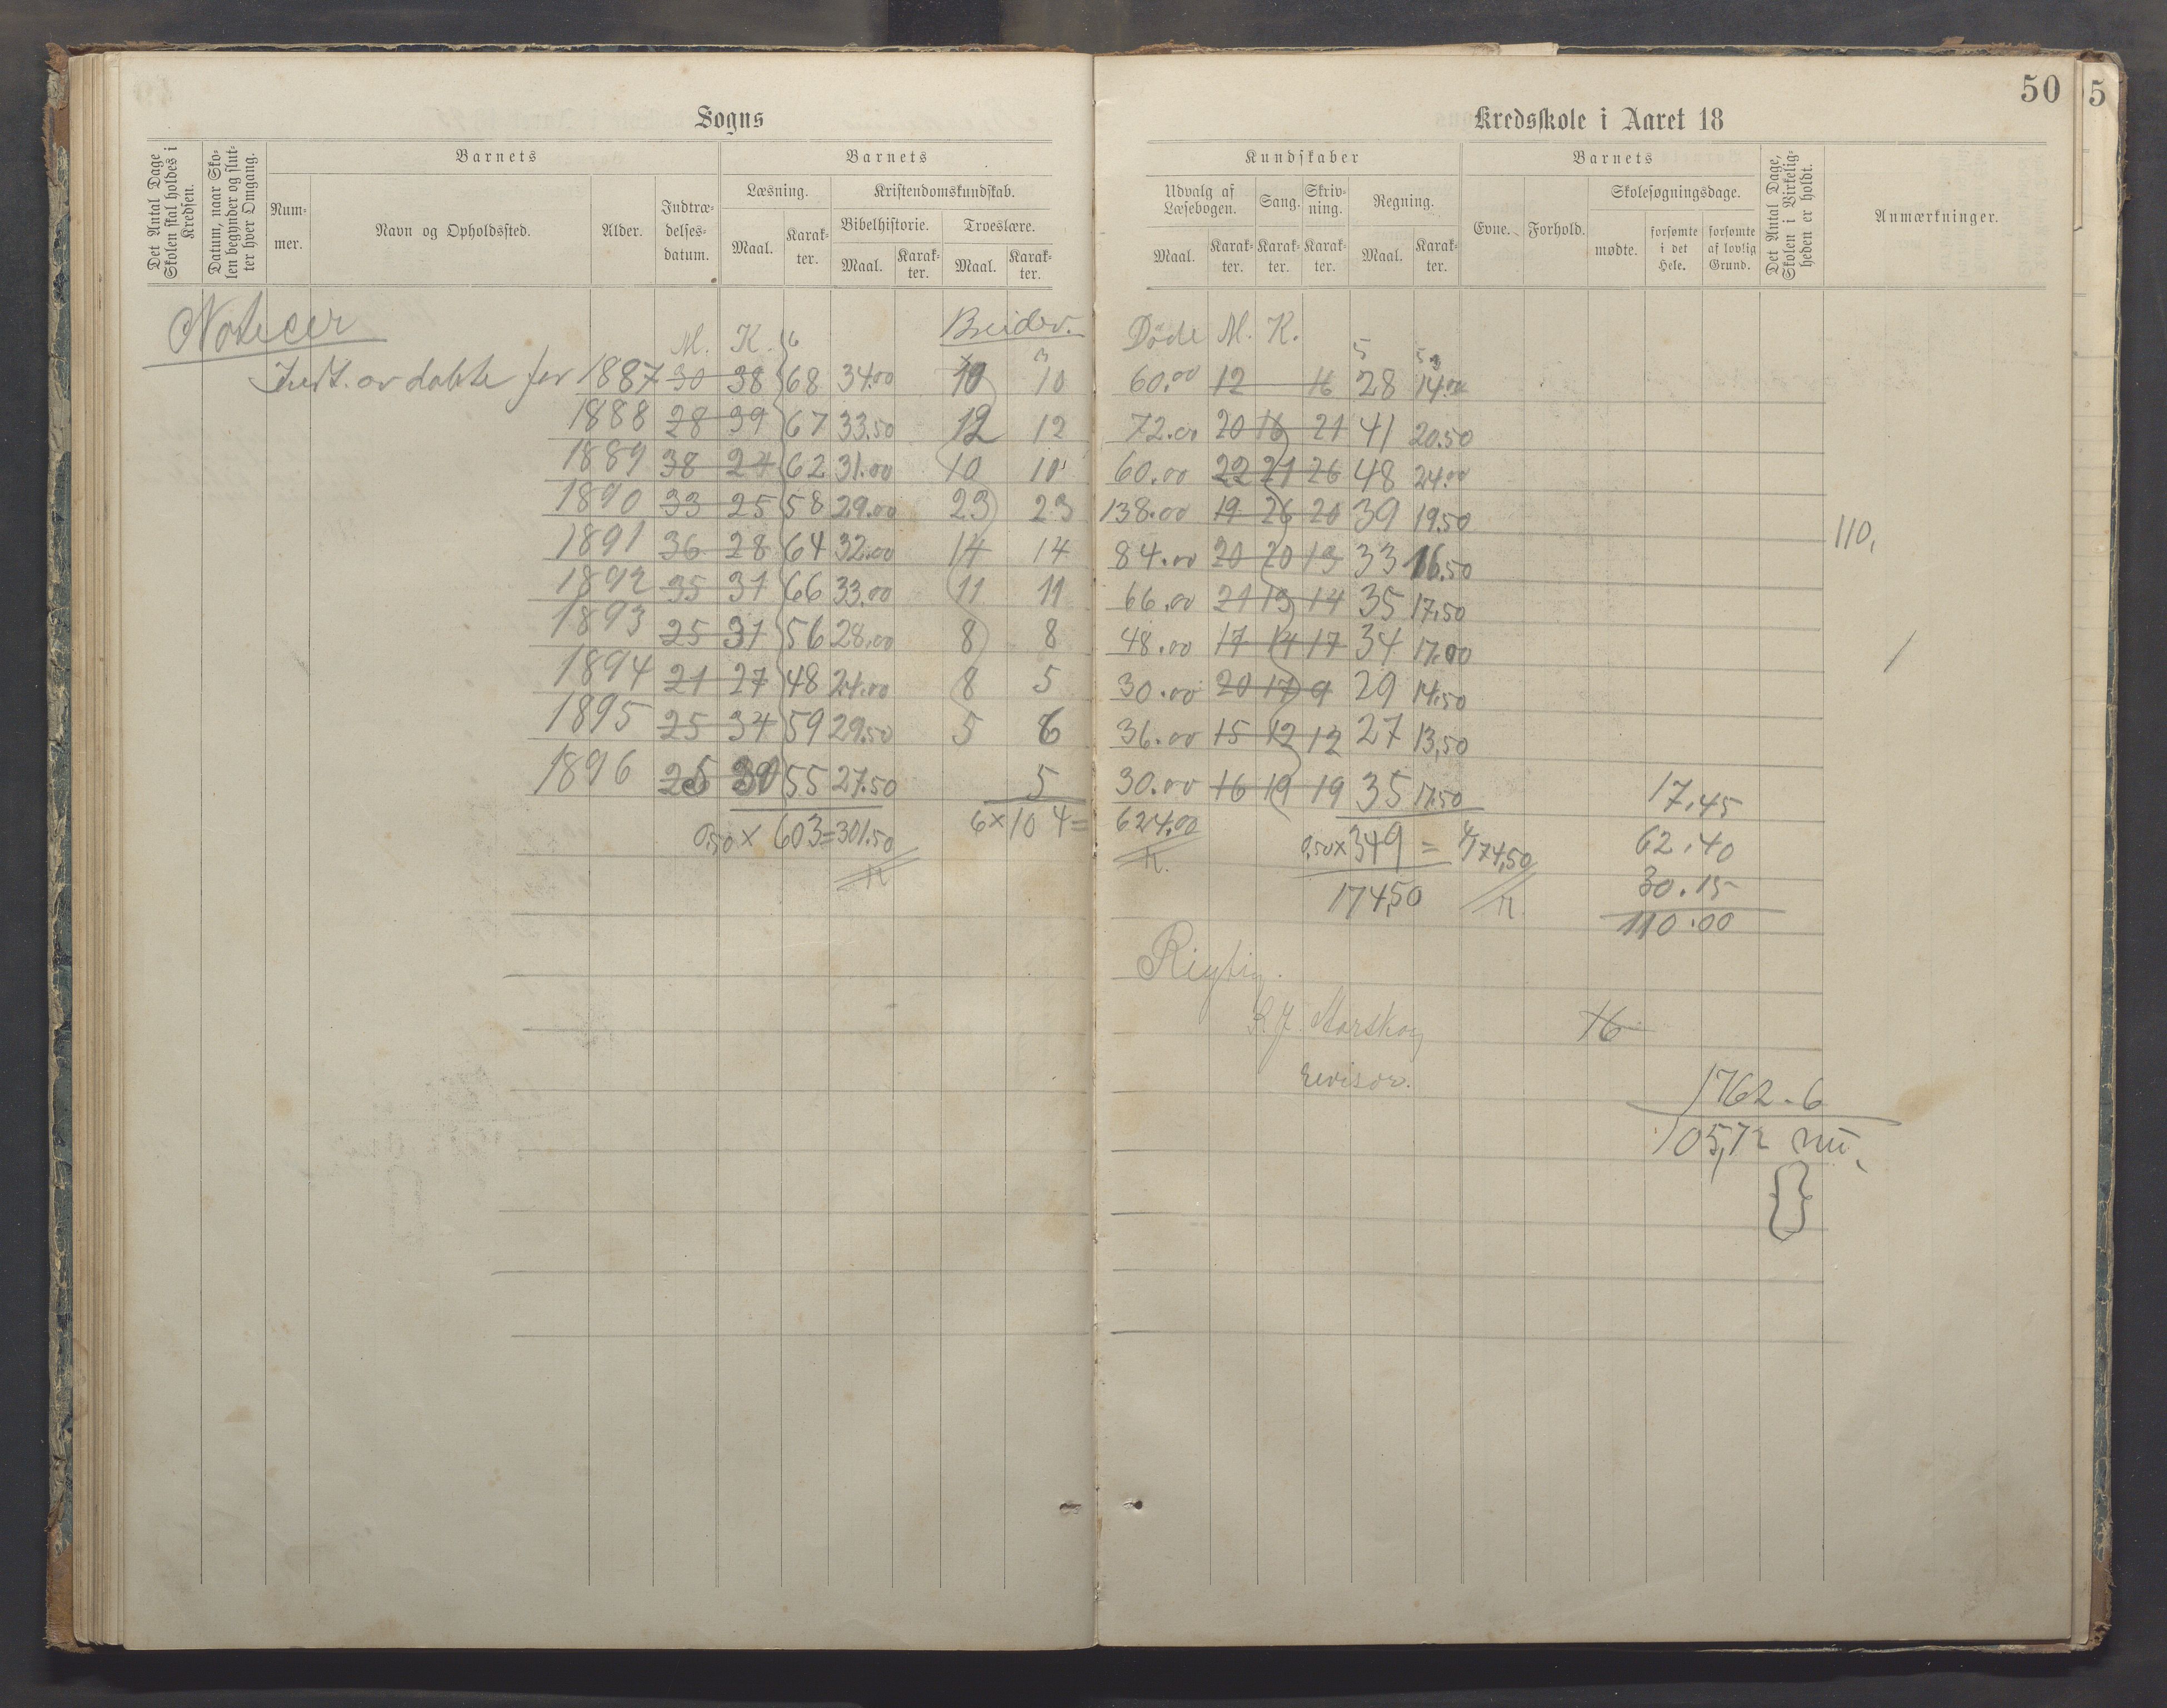 50
5
Sogns
Kredsskole i Aaret 18
Det Antal Dage Skolen skal holdes i Kredsen.
Datum, naar Skolen begynder og slutter hver Omgang.
Barnets
Barnets
Nummer.
Navn og Opholdssted.
Alder.
Indtrædelsesdatum.
Læsning.
Kristendomskundskab.
Maal.
Karakter.
Bibelhistorie.
Troeslære.
Maal.
Karakter.
Maal.
Karakter.
Kundskaber
Barnets
Udvalg af Læsebogen.
Sang.
Skrivning.
Regning.
Evne.
Forhold.
Skolesøgningsdage.
Det Antal Dage, Skolen i Virkeligheden er holdt.
Anmærkninger.
Maal.
Karakter.
Karakter.
Karakter.
Maal.
Karakter.
mødte.
forsømte i det Hele.
forsømte af lovlig Grund.
Noticer
M. K. Døde M. K.
for 1887 30 38 68 34.00 10 10 60.00 12 16 28 14.00
1888 28 39 67 33.50 12 12 72.00 20 16 21 41 20.50
1889 38 24 62 31.00 10 10 60.00 22 21 26 48 24.00
1890 33 25 58 29.00 23 23 138.00 19 26 20 39 19.50
110,
1891 36 28 64 32.00 14 14 84.00 20 20 13 33 16.50
1892 35 31 66 33.00 11 11 66.00 21 13 14 35 17.50
1893 25 31 56 28.00 8 8 48.00 17 14 17 34 17.00
1894 21 27 48 24.00 8 5 30.00 20 17 9 29 14.50
1895 25 34 59 29.50 5 6 36.00 15 12 12 27 13,50
1896 25 30 55 27.50 5 30.00 16 19 19 35 17.50 17.45
0,50 x 603 = 301.50 6 x 104 = 624.00 0,50 x 349 = 174,50 62.40
174,50 30.15
110.00
Rigtig.
revisor.
16
1762.6
105,72